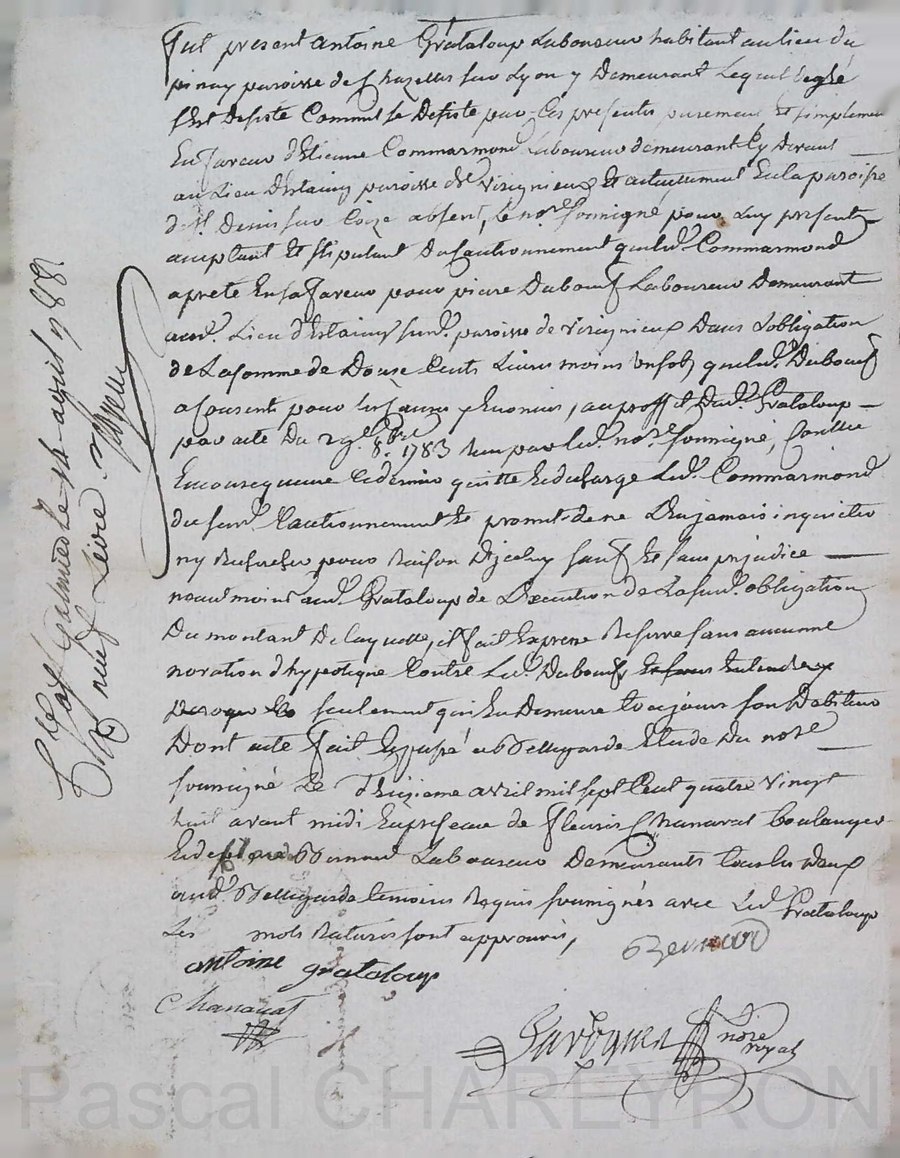 fut present antoine Grataloup Laboureur habitant au lieu du
pinay paroisse de Chazelles sur Lyon y Demeurant Lequel de gré
s'est Desisté Comme se Desiste par Ces presentes purement Et simplement
En faveur d'Etienne Commarmond Laboureur demeurant Cy devant
au Lieu d'Estaing paroisse de Virignieux Et actuellement En la paroisse
de St. Denis sur Coize absent, le no.re soussigné pour Luy present
acceptant Et stipulant Du Cautionnement que led. Commarmond
a preté En sa faveur pour pierre Duboeuf Laboureur Demeurant
aud. Lieu d'Estaing susd. paroisse de Virignieux Dans L'obligation
de La somme de Douze Cents Livres moins un sol que led. Duboeuf
a Consenti pour au proffit Dud. Grataloup
par acte Du 29e. 8bre 1783 Reçu par led. no.re soussigné,
En consequence Ce dernier quitte Et décharge Led. Commarmond
du susd. Cautionnement Et promet de ne L'en jamais inquieter
ny Rechercher pour Raison D'jceluy sauf Et sans prejudice
neantmoins aud. Grataloup de L'Execution de La susd. obligation
Du montant De laquelle, il fait Expresse Reserve sans aucunne
novation d'hypoteque Contre Led. Duboeuf
seulement qui En Demeure toujours son Debiteur
Dont acte fait Et passé a Bellegarde Etude Du no.re
soussigné Le d'huizieme avril mil sept Cent quatre Vingt
huit avant midi En presence de fleuris Chanavat boulanger
Et de Bernard Laboureur Demeurants tous les deux
aud. Bellegarde temoins Requis soussignés avec Led. Grataloup
Les mots Raturés sont approuvés,
Bernard
antoine grataloup
Chanavat
no.re royal
avril 1788.
neuf Livre
Pascal CHARLEYRON